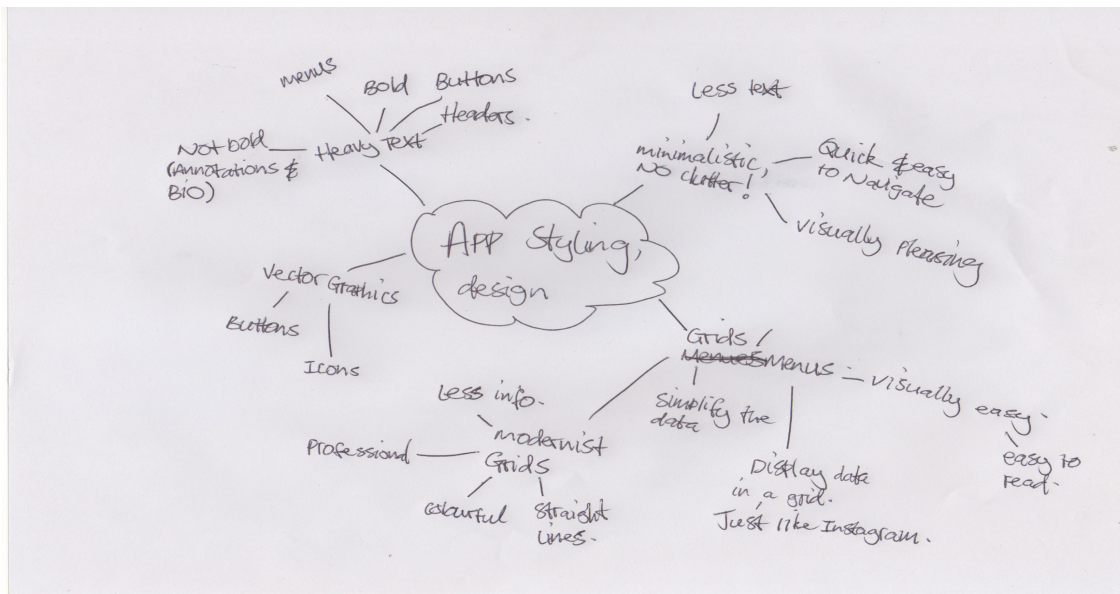 App Styling,
design
Heavy Text
menus
Bold
Buttons
Headers.
Not bold
(Annotations &
BIO)
minimalistic,
NO clutter!
Less text
Quick & easy
to Navigate
visually pleasing
Vector Graphics
Buttons
Icons
Grids /
Menues Menus
simplify the
data
Display data
in a grid.
Just like Instagram.
visually easy.
easy to
read.
modernist
Grids
Less info.
Professional
colourful
straight
lines.